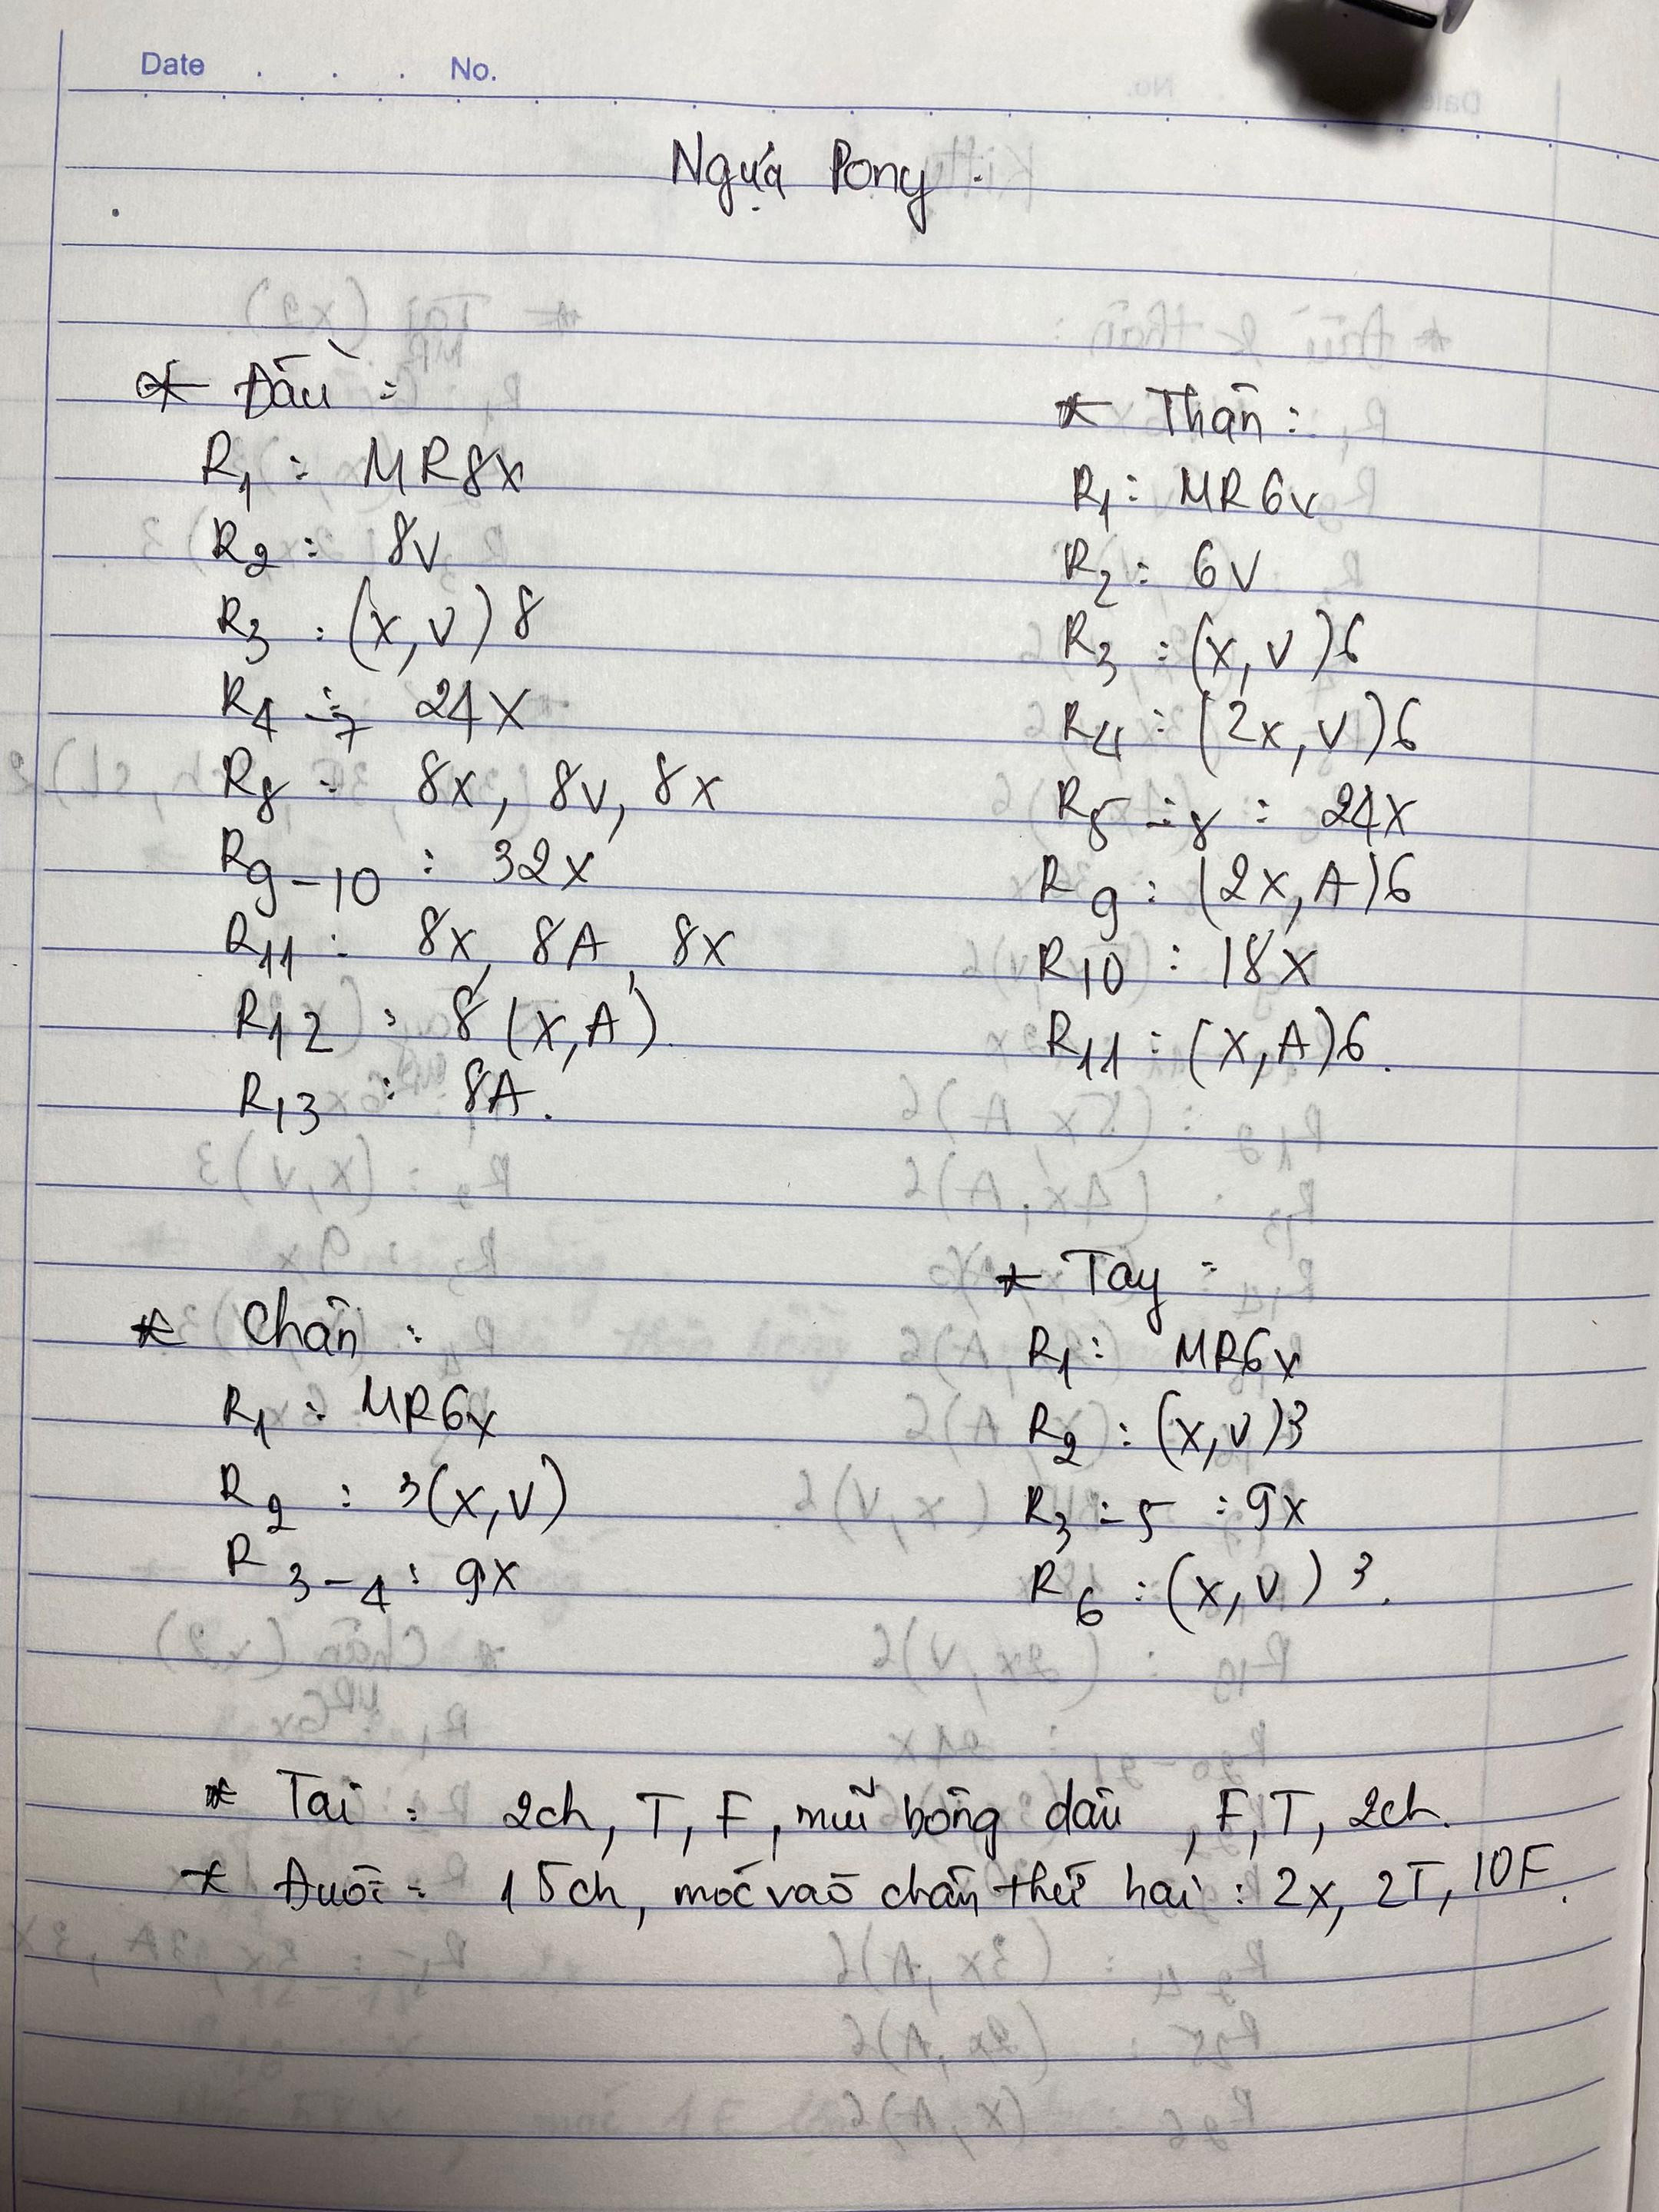 Date . . . No.
Ngựa Pony.
* Đầu :
R1 : MR8x
R2 : 8v
R3 : (x, v) 8
R4 ÷ 7 24x
R8 : 8x, 8v, 8x
R9-10 : 32x
R11 : 8x, 8A, 8x
R12 : 8 (x, A).
R13 : 8A.
* Thân :
R1 : MR6x
R2 : 6v
R3 : (x, v) 6
R4 : (2x, v) 6
R5 ÷ 8 : 24x
R9 : (2x, A) 6
R10 : 18x
R11 : (x, A) 6.
* Chân :
R1 : MR6x
R2 : 3(x, v)
R3-4 : 9x
* Tay :
R1 : MR6x
R2 : (x, v) 3
R3 ÷ 5 : 9x
R6 : (x, v) 3.
* Tai : 2ch, T, F, mũi bông dầu, F, T, 2ch.
* Đuôi : 15ch, móc vào chân thứ hai : 2x, 2T, 10F.